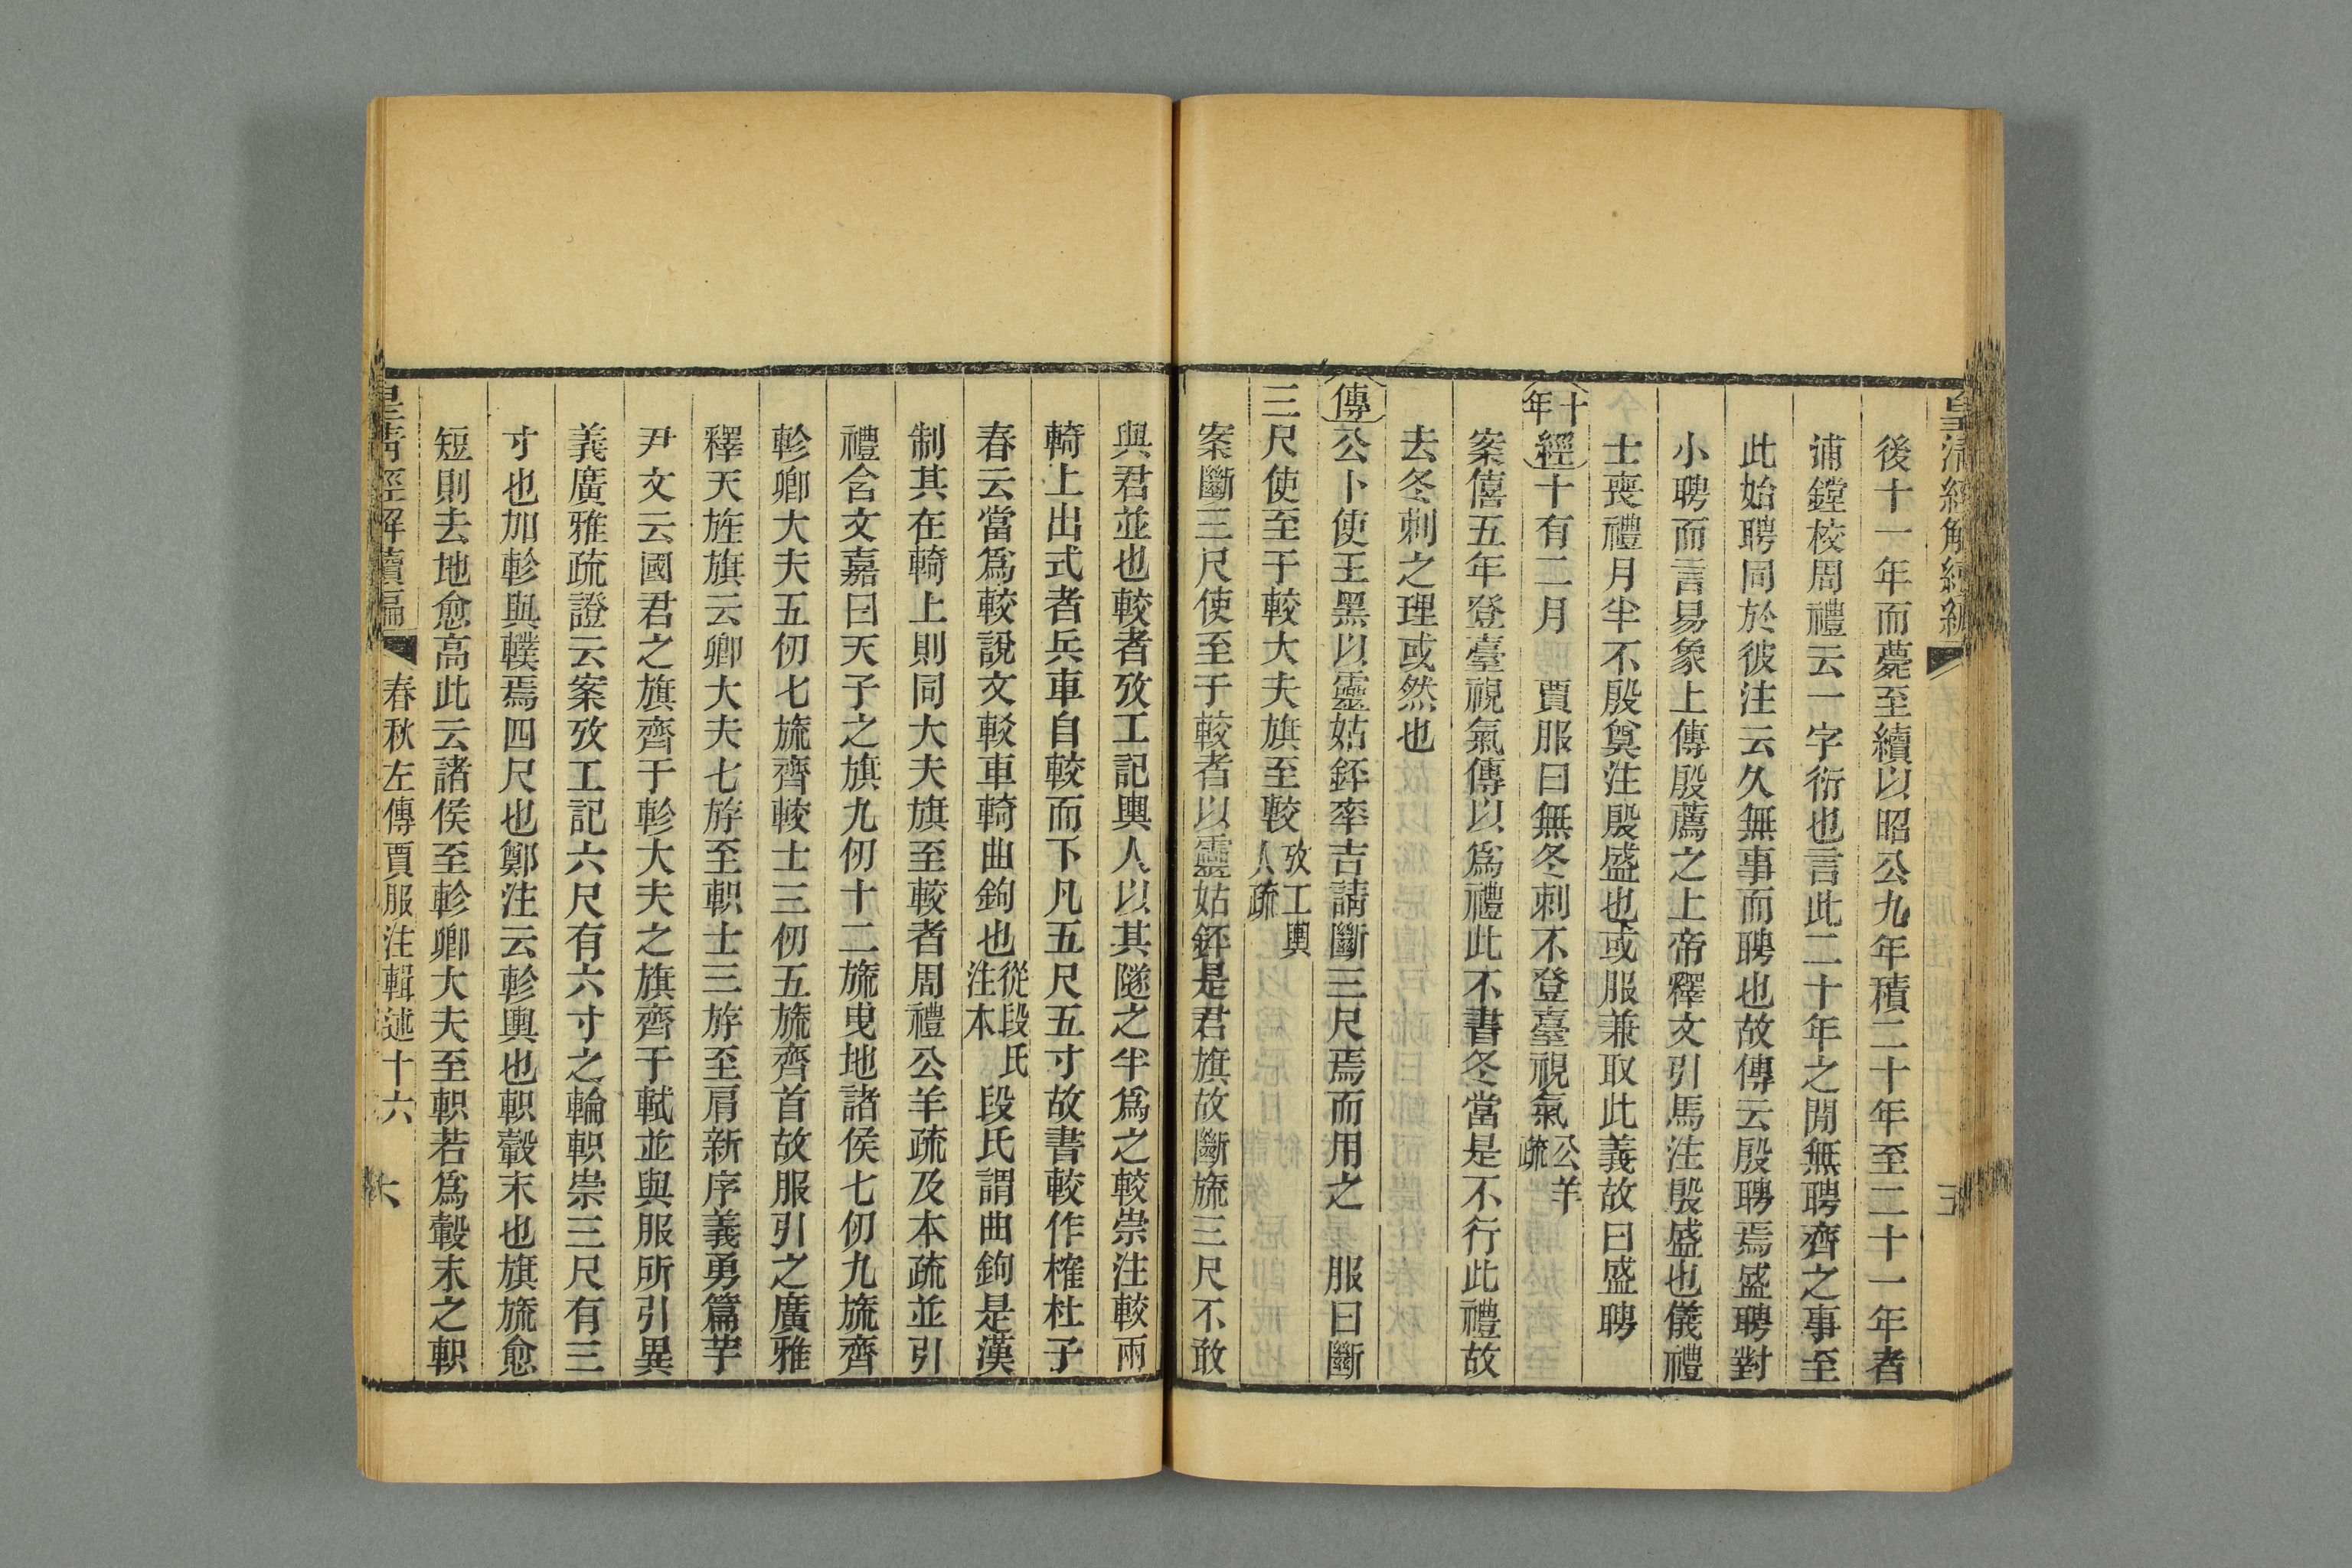 皇清經解續編
後十一年而薨至續以昭公九年積二十年至二十一年者
浦鏜校周禮云一字衍也言此二十年之閒無聘齊之事至
此始聘同於彼注云久無事而聘也故傳云殷聘焉盛聘對
小聘而言易象上傳殷薦之上帝釋文引馬注殷盛也儀禮
士喪禮月半不殷奠注殷盛也或服兼取此義故曰盛聘
十年經十有二月 賈服曰無冬刺不登臺視氣公羊疏
案僖五年登臺視氣傳以爲禮此不書冬當是不行此禮故
去冬刺之理或然也
傳公卜使王黑以靈姑銔率吉請斷三尺焉而用之 服曰斷
三尺使至于較大夫旗至較攷工輿人疏
案斷三尺使至于較者以靈姑銔是君旗故斷旒三尺不敢
與君並也較者攷工記輿人以其隧之半爲之較崇注較兩
輢上出式者兵車自較而下凡五尺五寸故書較作榷杜子
春云當爲較說文較車輢曲鉤也從段氏注本 段氏謂曲鉤是漢
制其在輢上則同大夫旗至較者周禮公羊疏及本疏並引
禮含文嘉曰天子之旗九仞十二旒曳地諸侯七仞九旒齊
軫卿大夫五仞七旒齊較士三仞五旒齊首故服引之廣雅
釋天旌旗云卿大夫七斿至軹士三斿至肩新序義勇篇芋
尹文云國君之旗齊于軫大夫之旗齊于軾並與服所引異
義廣雅疏證云案攷工記六尺有六寸之輪軹崇三尺有三
寸也加軫與轐焉四尺也鄭注云軫輿也軹轂末也旗旒愈
短則去地愈高此云諸侯至軫卿大夫至軹若爲轂末之軹
皇清經解續編 春秋左傳賈服注輯述十六 六